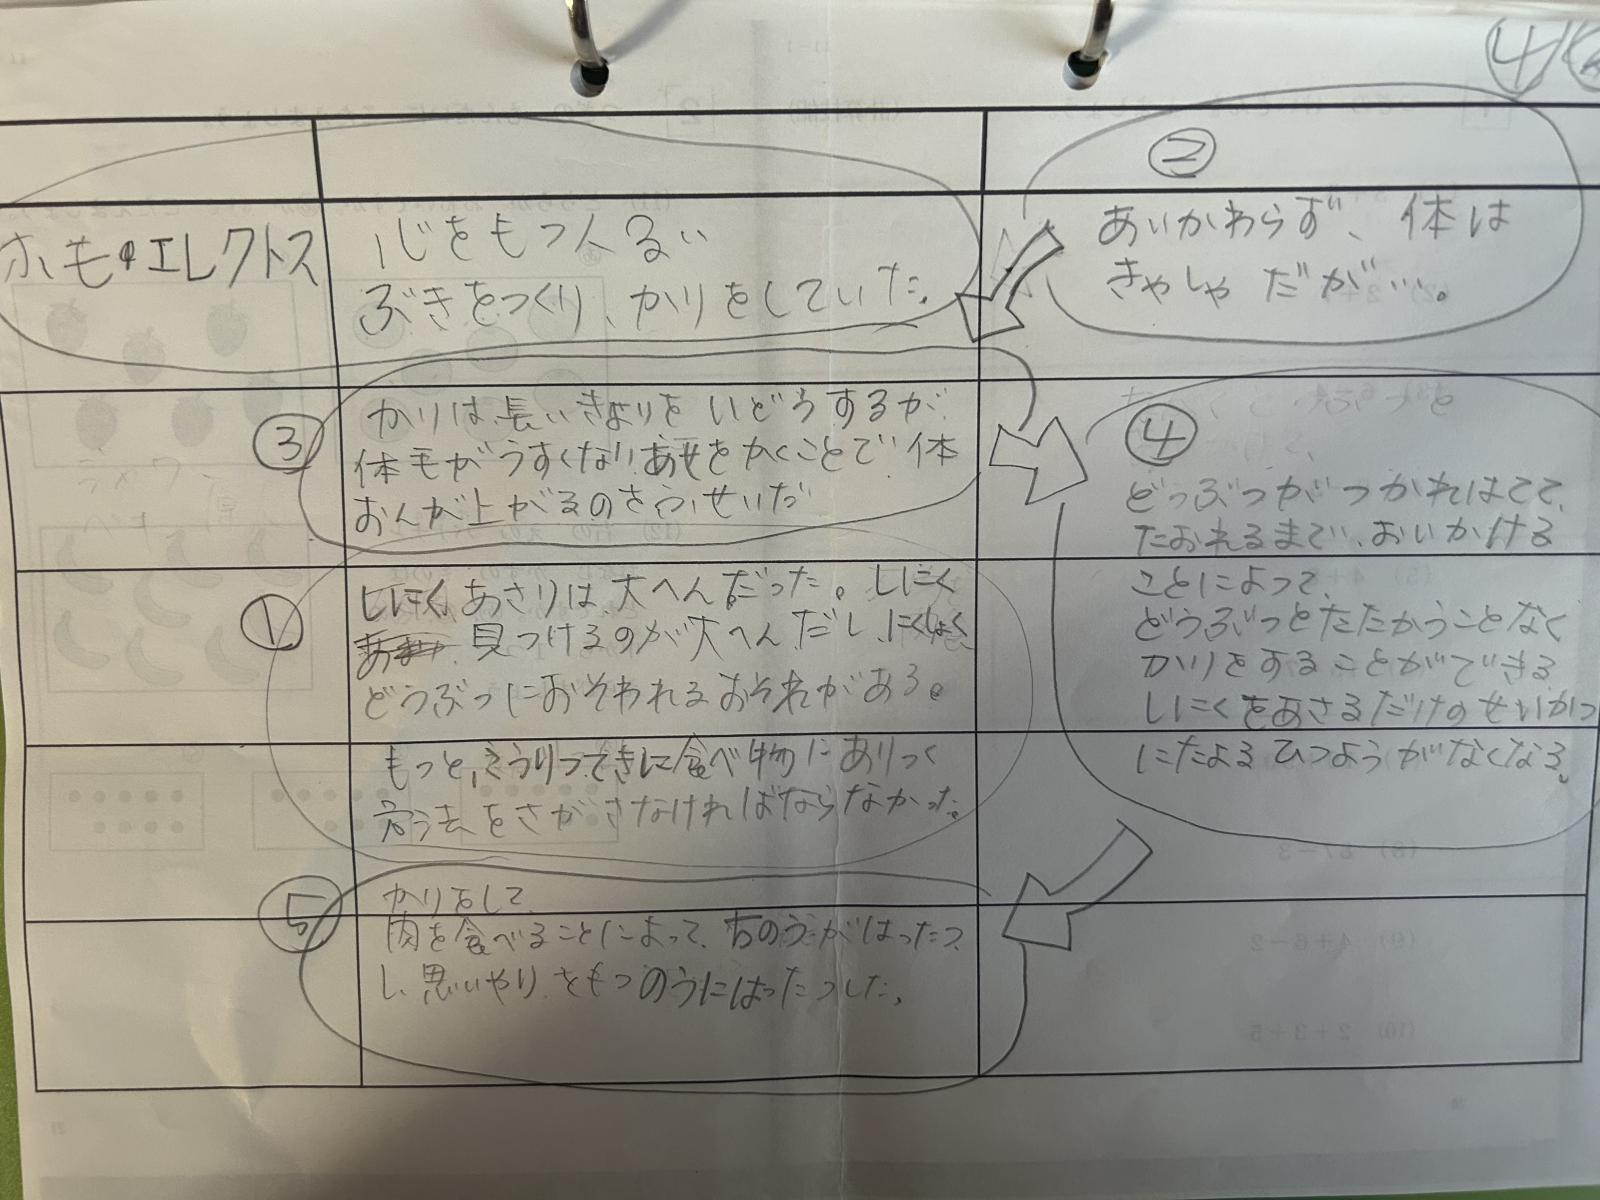 4
ホモ・エレクトス
心をもつ人るい
ぶきをつくり、かりをしていた。
②
あいかわらず、体は
きゃしゃだが…。
③
かりは、長いきょりをいどうするが、
体毛がうすくなり、あせをかくことで体
おんが上がるのをふせいだ
④
どうぶつがつかれはてて、
たおれるまで、おいかける
ことによって、
どうぶつとたたかうことなく
かりをすることができる
しにくをあさるだけのせいかつ
にたよるひつようがなくなる。
①
しにくあさりは大へんだった。しにく
見つけるのが大へんだし、にくしょく
どうぶつにおそわれるおそれがある。
もっと、こうりつてきに食べ物にありつく
方法をさがさなければならなかった。
⑤
かりをして、
肉を食べることによって、のうがはったつ
し、思いやりをもつのうにはったつした。